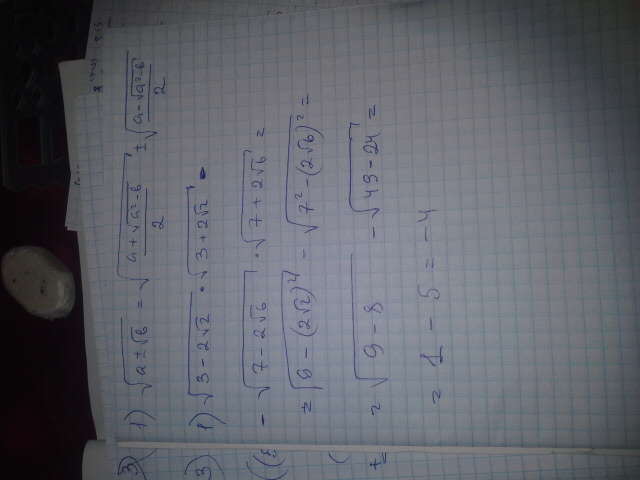 3) 1) √(a±√b) = √((a+√(a²-b))/2) ± √((a-√(a²-b))/2)
3) 1) √(3-2√2) · √(3+2√2) -
- √(7-2√6) · √(7+2√6) =
= √(9-(2√2)²) - √(7²-(2√6)²) =
= √(9-8) - √(49-24) =
= 1 - 5 = -4